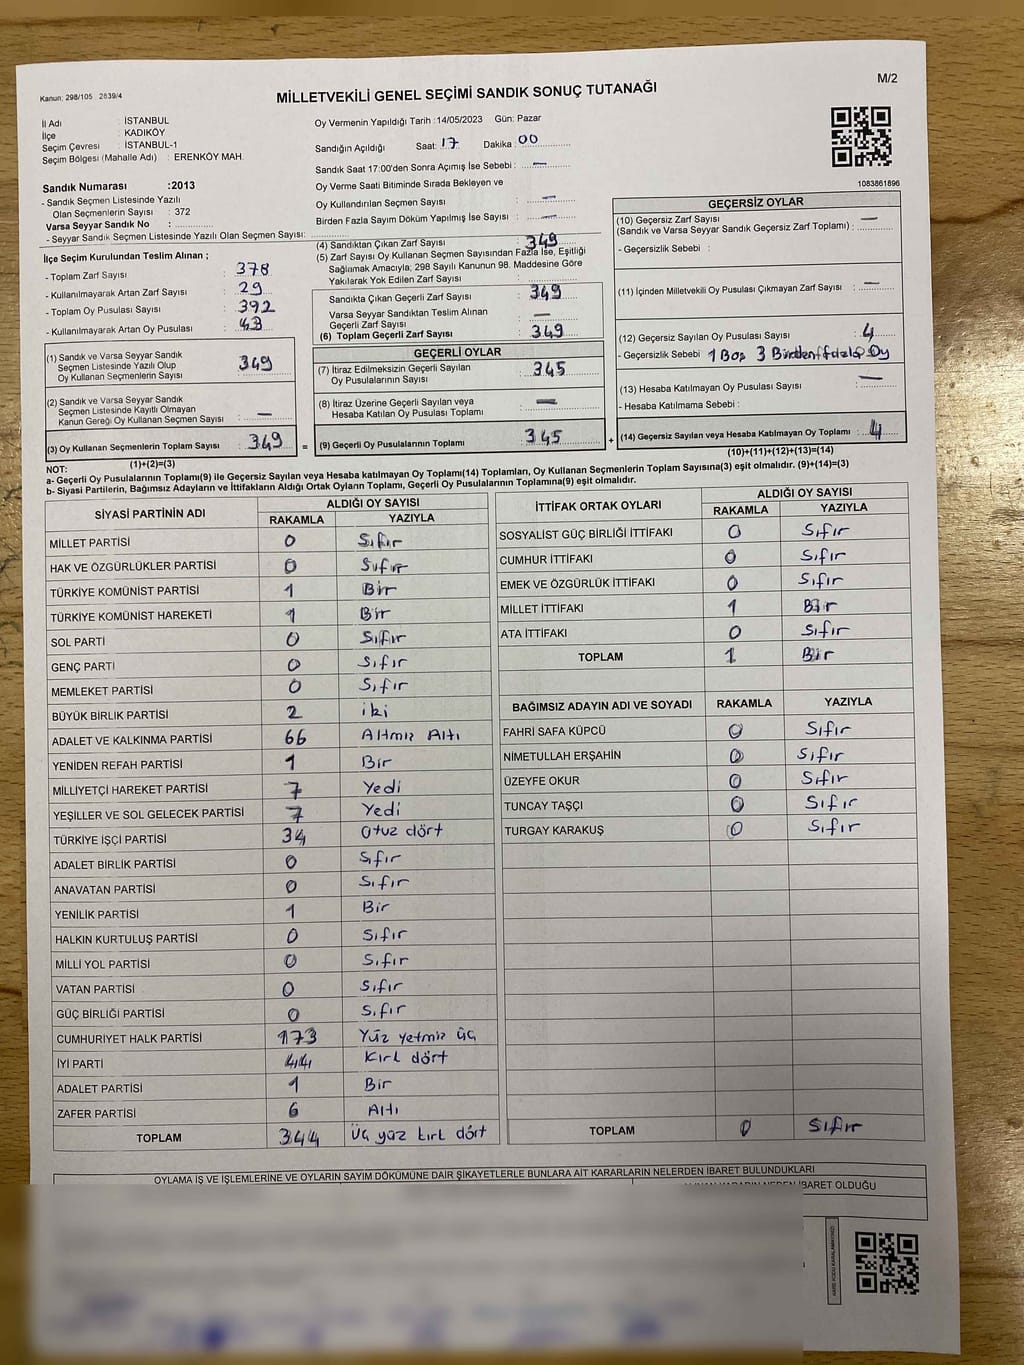 Kanun: 298/105 2839/4
M/2
MİLLETVEKİLİ GENEL SEÇİMİ SANDIK SONUÇ TUTANAĞI
İl Adı : İSTANBUL
İlçe : KADIKÖY
Seçim Çevresi : İSTANBUL-1
Seçim Bölgesi (Mahalle Adı) : ERENKÖY MAH.
Sandık Numarası :2013
- Sandık Seçmen Listesinde Yazılı
Olan Seçmenlerin Sayısı : 372
Varsa Seyyar Sandık No :
- Seyyar Sandık Seçmen Listesinde Yazılı Olan Seçmen Sayısı:
Oy Vermenin Yapıldığı Tarih :14/05/2023 Gün: Pazar
Sandığın Açıldığı Saat: 17 Dakika : 00
Sandık Saat 17:00'den Sonra Açımış İse Sebebi : —
Oy Verme Saati Bitiminde Sırada Bekleyen ve
Oy Kullandırılan Seçmen Sayısı : —
Birden Fazla Sayım Döküm Yapılmış İse Sayısı : —
1083861896
İlçe Seçim Kurulundan Teslim Alınan ;
- Toplam Zarf Sayısı : 378
- Kullanılmayarak Artan Zarf Sayısı : 29
- Toplam Oy Pusulası Sayısı : 392
- Kullanılmayarak Artan Oy Pusulası : 43
(1) Sandık ve Varsa Seyyar Sandık
Seçmen Listesinde Yazılı Olup
Oy Kullanan Seçmenlerin Sayısı : 349
(2) Sandık ve Varsa Seyyar Sandık
Seçmen Listesinde Kayıtlı Olmayan
Kanun Gereği Oy Kullanan Seçmen Sayısı : —
(3) Oy Kullanan Seçmenlerin Toplam Sayısı : 349
(1)+(2)=(3)
(4) Sandıktan Çıkan Zarf Sayısı : 349
(5) Zarf Sayısı Oy Kullanan Seçmen Sayısından Fazla İse, Eşitliği
Sağlamak Amacıyla, 298 Sayılı Kanunun 98. Maddesine Göre
Yakılarak Yok Edilen Zarf Sayısı :
Sandıkta Çıkan Geçerli Zarf Sayısı : 349
Varsa Seyyar Sandıktan Teslim Alınan
Geçerli Zarf Sayısı : —
(6) Toplam Geçerli Zarf Sayısı : 349
GEÇERLİ OYLAR
(7) İtiraz Edilmeksizin Geçerli Sayılan
Oy Pusulalarının Sayısı : 345
(8) İtiraz Üzerine Geçerli Sayılan veya
Hesaba Katılan Oy Pusulası Toplamı : —
= (9) Geçerli Oy Pusulalarının Toplamı : 345
GEÇERSİZ OYLAR
(10) Geçersiz Zarf Sayısı —
(Sandık ve Varsa Seyyar Sandık Geçersiz Zarf Toplamı) :
- Geçersizlik Sebebi :
(11) İçinden Milletvekili Oy Pusulası Çıkmayan Zarf Sayısı : —
(12) Geçersiz Sayılan Oy Pusulası Sayısı : 4
- Geçersizlik Sebebi 1 Boş 3 Birden fazla Oy
(13) Hesaba Katılmayan Oy Pusulası Sayısı : —
- Hesaba Katılmama Sebebi :
+ (14) Geçersiz Sayılan veya Hesaba Katılmayan Oy Toplamı : 4
(10)+(11)+(12)+(13)=(14)
NOT:
a- Geçerli Oy Pusulalarının Toplamı(9) ile Geçersiz Sayılan veya Hesaba katılmayan Oy Toplamı(14) Toplamları, Oy Kullanan Seçmenlerin Toplam Sayısına(3) eşit olmalıdır. (9)+(14)=(3)
b- Siyasi Partilerin, Bağımsız Adayların ve İttifakların Aldığı Ortak Oyların Toplamı, Geçerli Oy Pusulalarının Toplamına(9) eşit olmalıdır.
SİYASİ PARTİNİN ADI ALDIĞI OY SAYISI
RAKAMLA YAZIYLA
MİLLET PARTİSİ 0 Sıfır
HAK VE ÖZGÜRLÜKLER PARTİSİ 0 Sıfır
TÜRKİYE KOMÜNİST PARTİSİ 1 Bir
TÜRKİYE KOMÜNİST HAREKETİ 1 Bir
SOL PARTİ 0 Sıfır
GENÇ PARTİ 0 Sıfır
MEMLEKET PARTİSİ 0 Sıfır
BÜYÜK BİRLİK PARTİSİ 2 iki
ADALET VE KALKINMA PARTİSİ 66 Altmış Altı
YENİDEN REFAH PARTİSİ 1 Bir
MİLLİYETÇİ HAREKET PARTİSİ 7 Yedi
YEŞİLLER VE SOL GELECEK PARTİSİ 7 Yedi
TÜRKİYE İŞÇİ PARTİSİ 34 Otuz dört
ADALET BİRLİK PARTİSİ 0 Sıfır
ANAVATAN PARTİSİ 0 Sıfır
YENİLİK PARTİSİ 1 Bir
HALKIN KURTULUŞ PARTİSİ 0 Sıfır
MİLLİ YOL PARTİSİ 0 Sıfır
VATAN PARTİSİ 0 Sıfır
GÜÇ BİRLİĞİ PARTİSİ 0 Sıfır
CUMHURİYET HALK PARTİSİ 173 Yüz yetmiş üç
İYİ PARTİ 44 Kırk dört
ADALET PARTİSİ 1 Bir
ZAFER PARTİSİ 6 Altı
TOPLAM 344 Üç yüz kırk dört
İTTİFAK ORTAK OYLARI ALDIĞI OY SAYISI
RAKAMLA YAZIYLA
SOSYALİST GÜÇ BİRLİĞİ İTTİFAKI 0 Sıfır
CUMHUR İTTİFAKI 0 Sıfır
EMEK VE ÖZGÜRLÜK İTTİFAKI 0 Sıfır
MİLLET İTTİFAKI 1 Bir
ATA İTTİFAKI 0 Sıfır
TOPLAM 1 Bir
BAĞIMSIZ ADAYIN ADI VE SOYADI RAKAMLA YAZIYLA
FAHRİ SAFA KÜPCÜ 0 Sıfır
NİMETULLAH ERŞAHİN 0 Sıfır
ÜZEYFE OKUR 0 Sıfır
TUNCAY TAŞÇI 0 Sıfır
TURGAY KARAKUŞ 0 Sıfır
TOPLAM 0 Sıfır
OYLAMA İŞ VE İŞLEMLERİNE VE OYLARIN SAYIM DÖKÜMÜNE DAİR ŞİKAYETLERLE BUNLARA AİT KARARLARIN NELERDEN İBARET BULUNDUKLARI
İBARET OLDUĞU